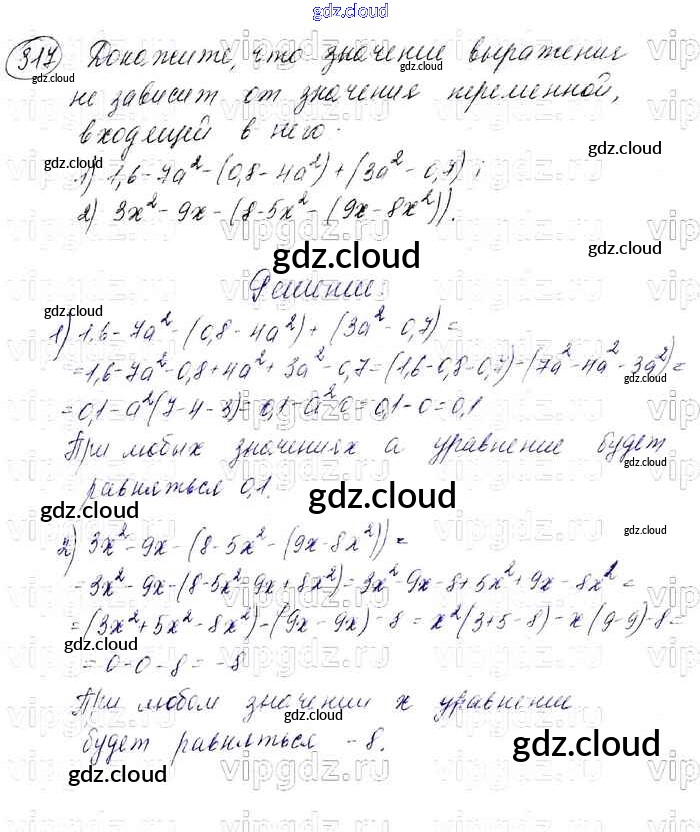 gdz.cloud
317 Докажите, что значение выражения
не зависит от значения переменной,
входящей в него.
1) 1,6-7a²-(0,8-4a²)+(3a²-0,7);
2) 3x²-9x-(8-5x²-(9x-8x²)).
gdz.cloud
Решение:
1) 1,6-7a²-(0,8-4a²)+(3a²-0,7)=
=1,6-7a²-0,8+4a²+3a²-0,7=(1,6-0,8-0,7)-(7a²-4a²-3a²)=
=0,1-a²(7-4-3)=0,1-a²·0=0,1-0=0,1
При любых значениях a уравнение будет
равняться 0,1.
gdz.cloud
2) 3x²-9x-(8-5x²-(9x-8x²))=
=3x²-9x-(8-5x²-9x+8x²)=3x²-9x-8+5x²+9x-8x²=
=(3x²+5x²-8x²)-(9x-9x)-8=x²(3+5-8)-x(9-9)-8=
=0-0-8=-8
При любом значении x уравнение
будет равняться -8.
gdz.cloud
gdz.cloud